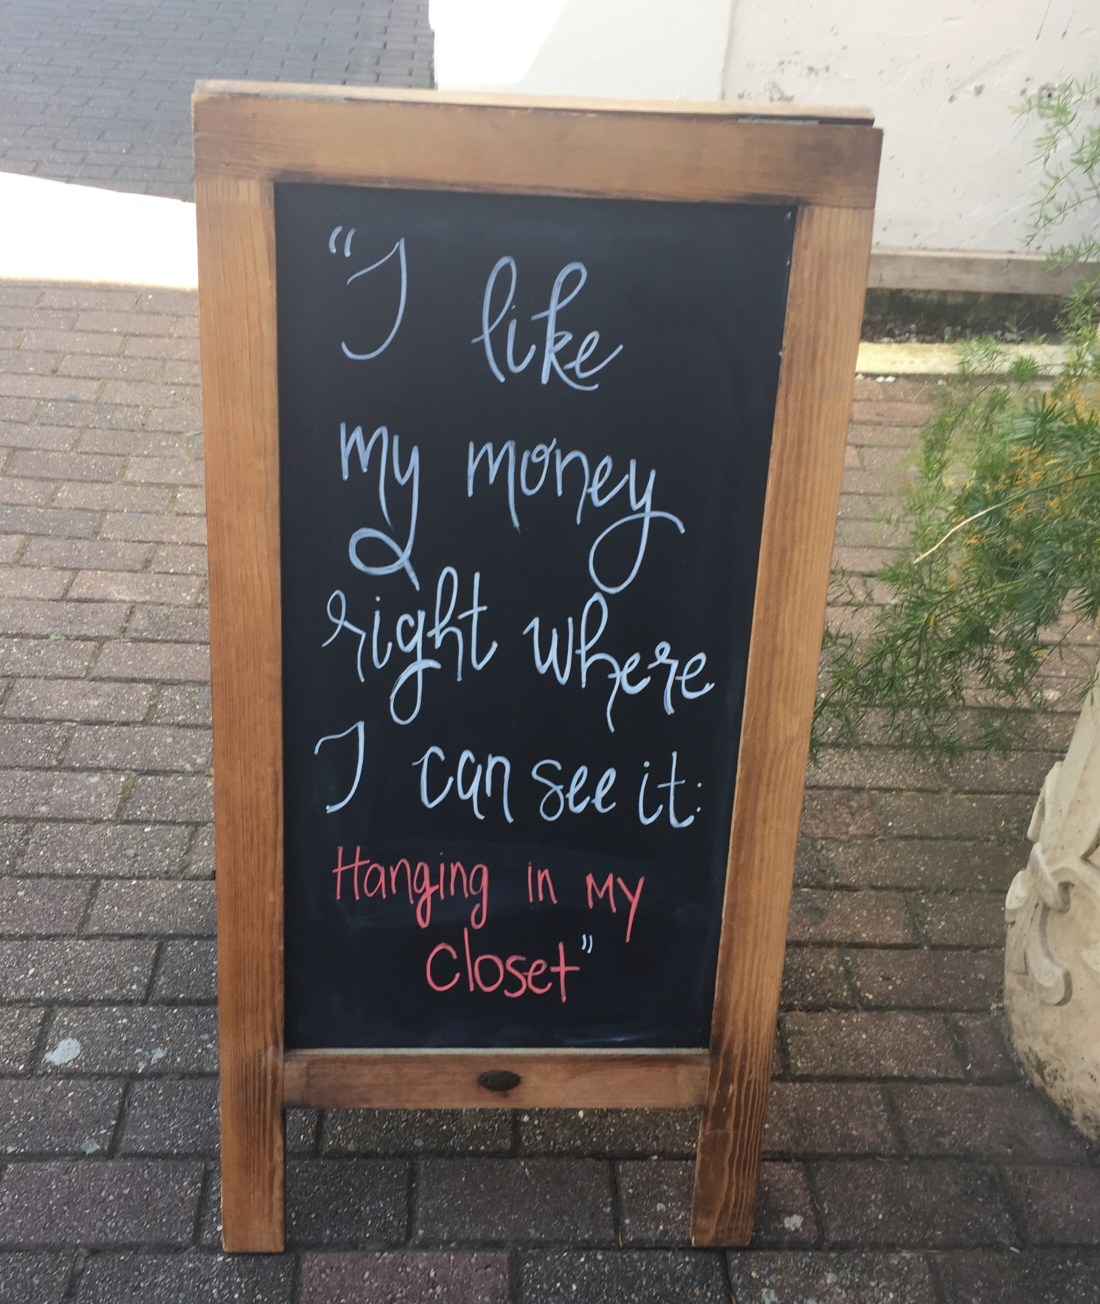 "I like
my money
right where
I can see it:
Hanging in my
closet"